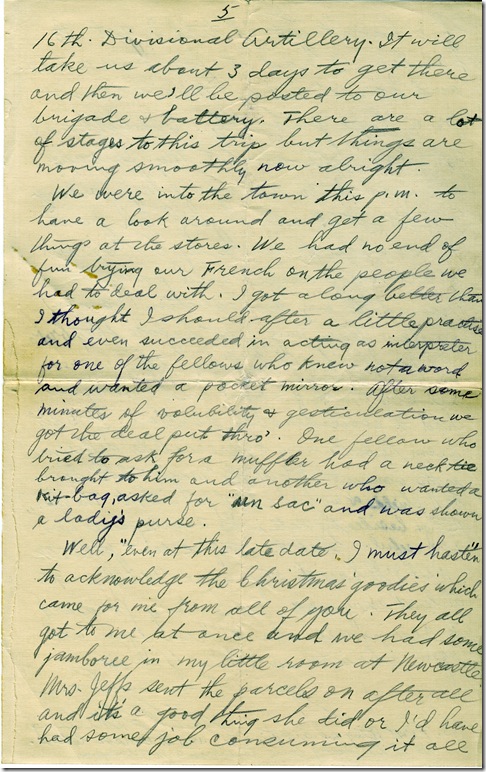 5
16th. Divisional Artillery. It will
take us about 3 days to get there
and then we'll be posted to our
brigade & battery. There are a lot
of stages to this trip but things are
moving smoothly now alright.
We were into the town this p.m. to
have a look around and get a few
things at the stores. We had no end of
fun trying our French on the people we
had to deal with. I got along better than
I thought I should after a little practise
and even succeeded in acting as interpreter
for one of the fellows who knew not a word
and wanted a pocket mirror. After some
minutes of volubility & gesticulation we
got the deal put thro'. One fellow who
tried to ask for a muffler had a neck tie
brought to him and another who wanted a
kit-bag, asked for "un sac" and was shown
a lady's purse.
Well, "even at this late date, I must hasten"
to acknowledge the Christmas 'goodies' which
came for me from all of you. They all
got to me at once and we had some
jamboree in my little room at Newcastle.
Mrs. Jeffs sent the parcels on after all
and it's a good thing she did or I'd have
had some job consuming it all